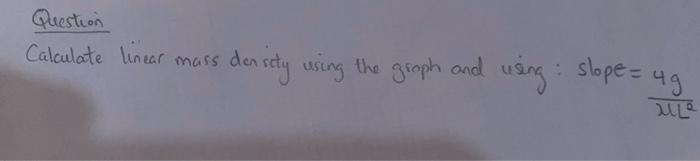 Question
Calculate linear mass density using the graph and using: slope = 4g
μL²